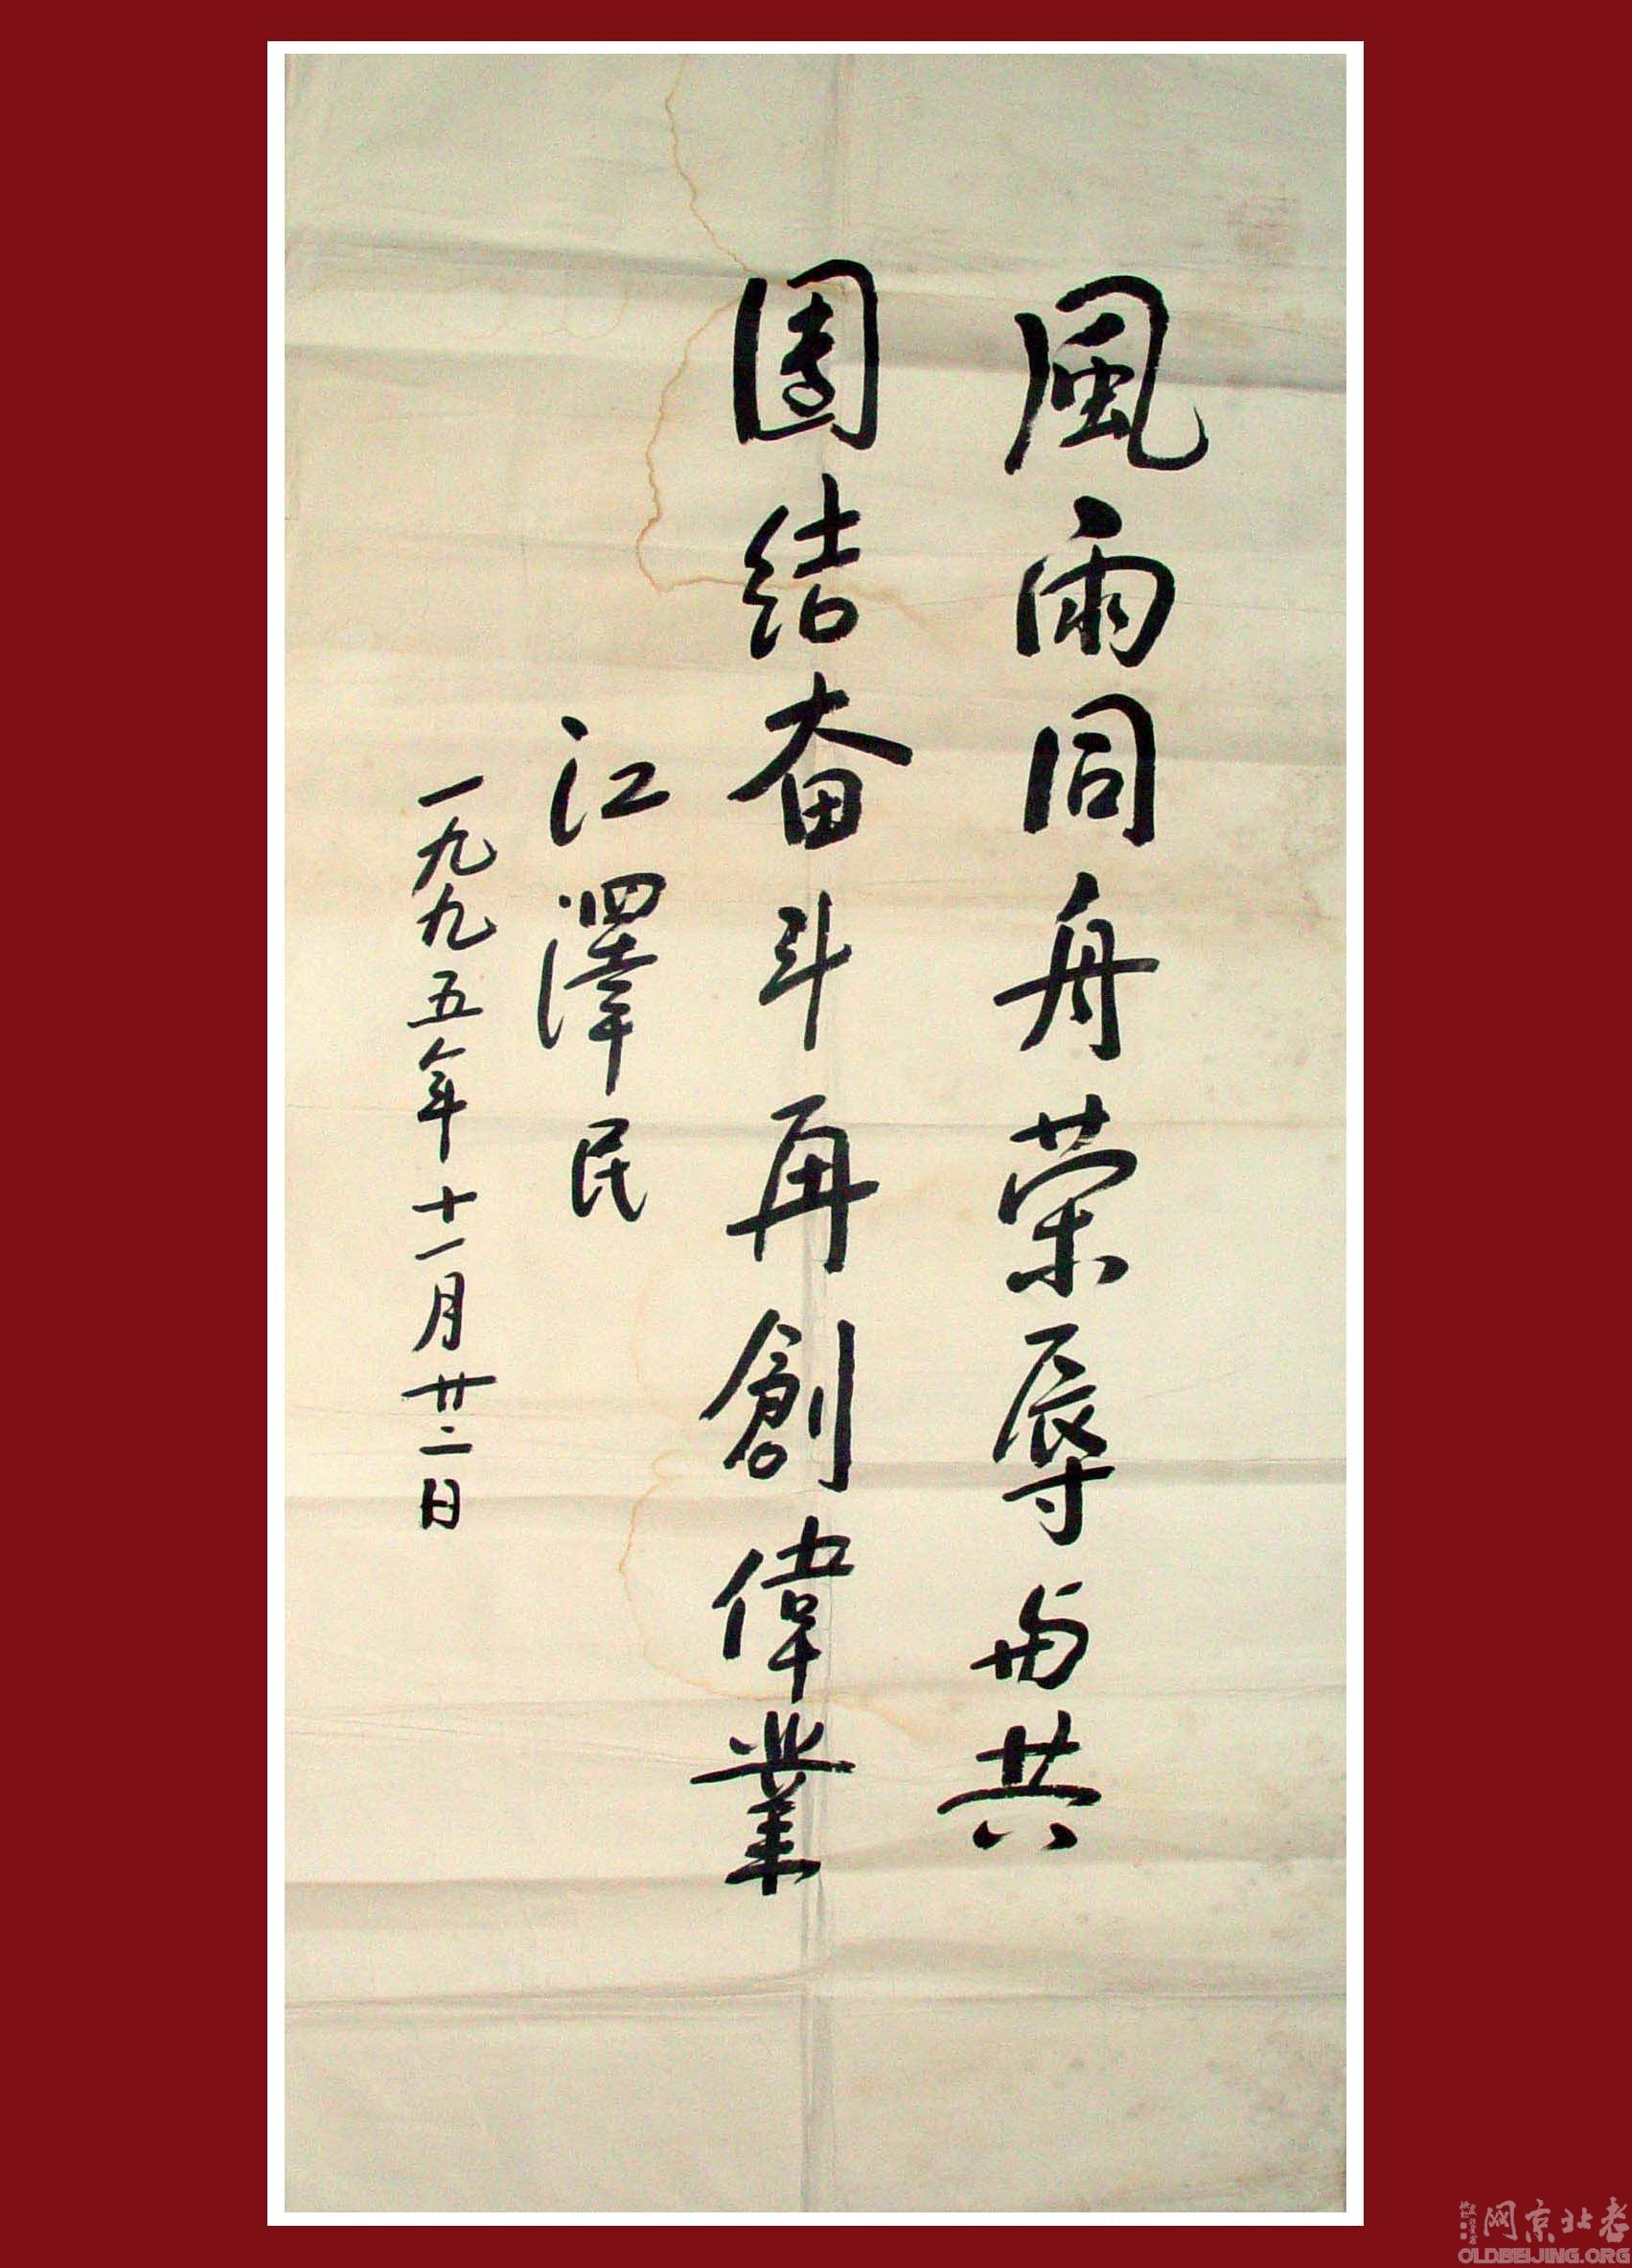 風雨同舟荣辱与共
團结奋斗再創偉業
江澤民
一九九五年十一月廿二日
老北京网
OLDBEIJING.ORG